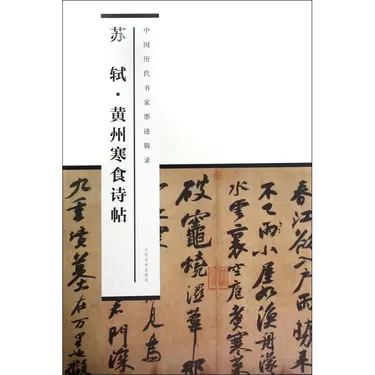 中国历代书家墨迹辑录
苏轼·黄州寒食诗帖
春江欲入户雨势来
不已雨小屋如渔舟濛
水雲裏空庖煮寒菜
破竈燒濕葦那
門深
九重墳墓在万里也擬